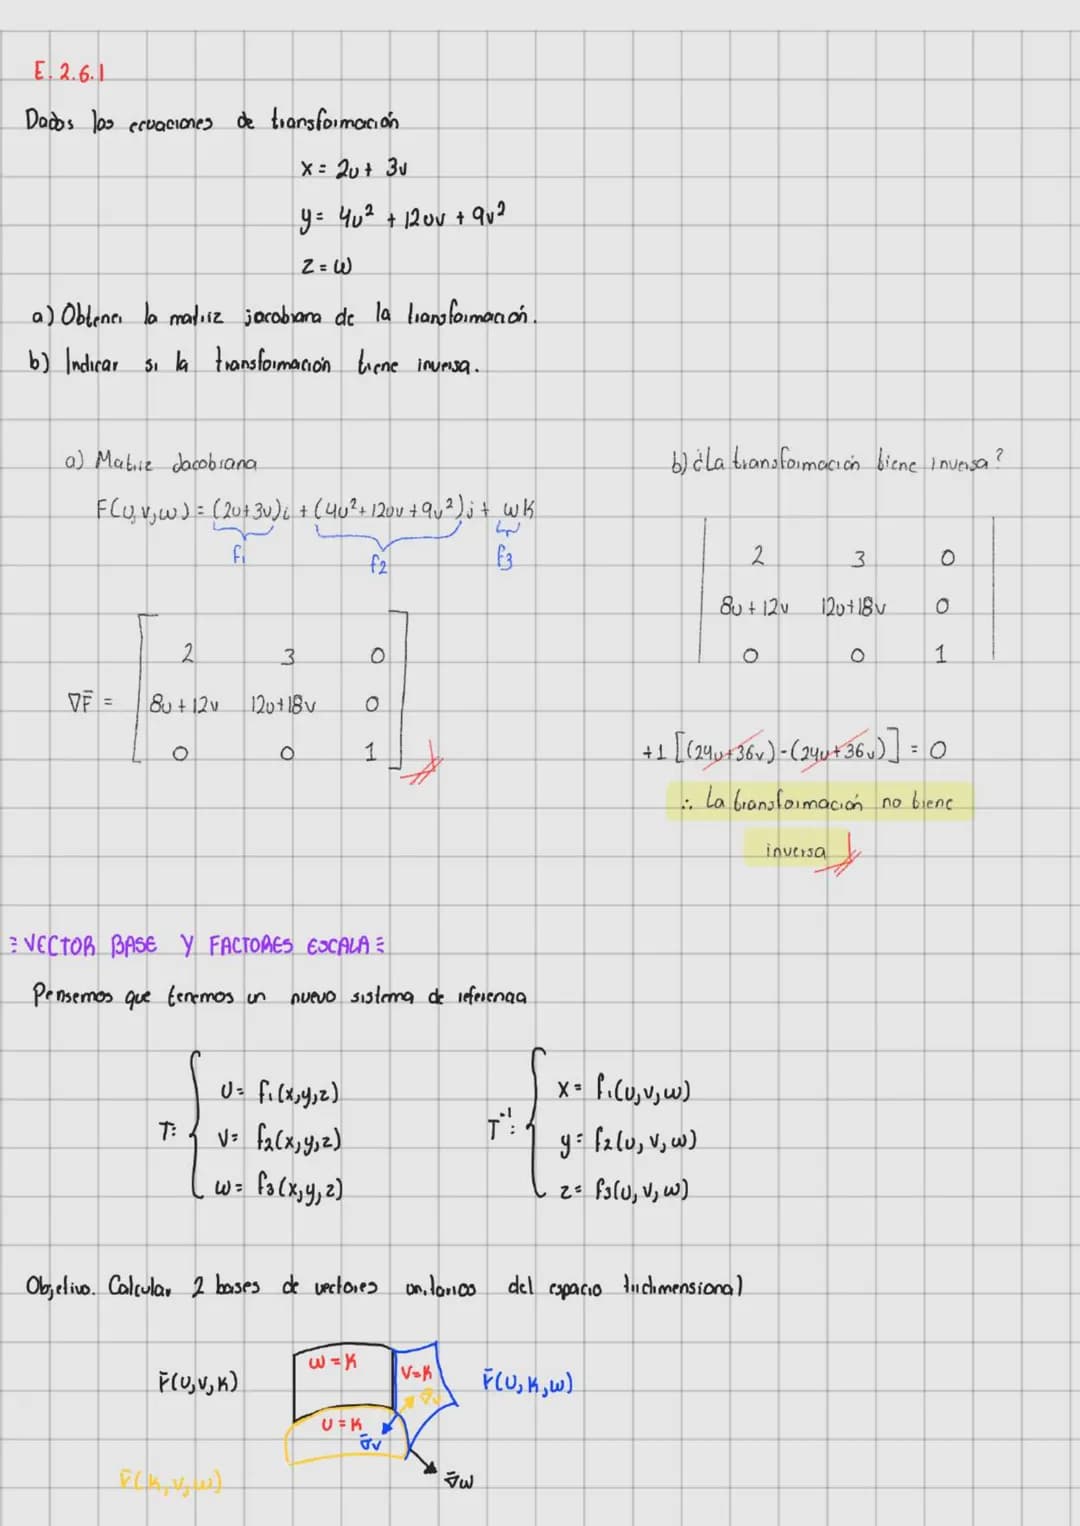 E. 2.6.1
Dados las ecuaciones de transformación
x = 2u + 3v
y = 4u² + 12uv + 9v²
z = w
a) Obtener la matriz jacobiana de la transformación.
b) Indicar si la transformación tiene inversa.
a) Matriz Jacobiana
F(u,v,w) = (2u+3v)i + (4u²+12uv+9v²)j + wk
f1 f2 f3
∇F̄ = [ 2 3 0
8u+12v 12u+18v 0
0 0 1 ]
b) ¿La transformación tiene inversa?
| 2 3 0 |
| 8u+12v 12u+18v 0 |
| 0 0 1 |
+1 [(24u+36v)-(24u+36v)] = 0
∴ La transformación no tiene
inversa
VECTOR BASE Y FACTORES ESCALA
Pensemos que tenemos un nuevo sistema de referencia
T: { u = f1(x,y,z)
v = f2(x,y,z)
w = f3(x,y,z)
T⁻¹: { x = f1(u,v,w)
y = f2(u,v,w)
z = f3(u,v,w)
Objetivo. Calcular 2 bases de vectores unitarios del espacio tridimensional
r̄(u,v,k)
w = k
v = k
r̄(u,k,w)
u = k
∇̄v
r̄(k,v,w)
∇̄w